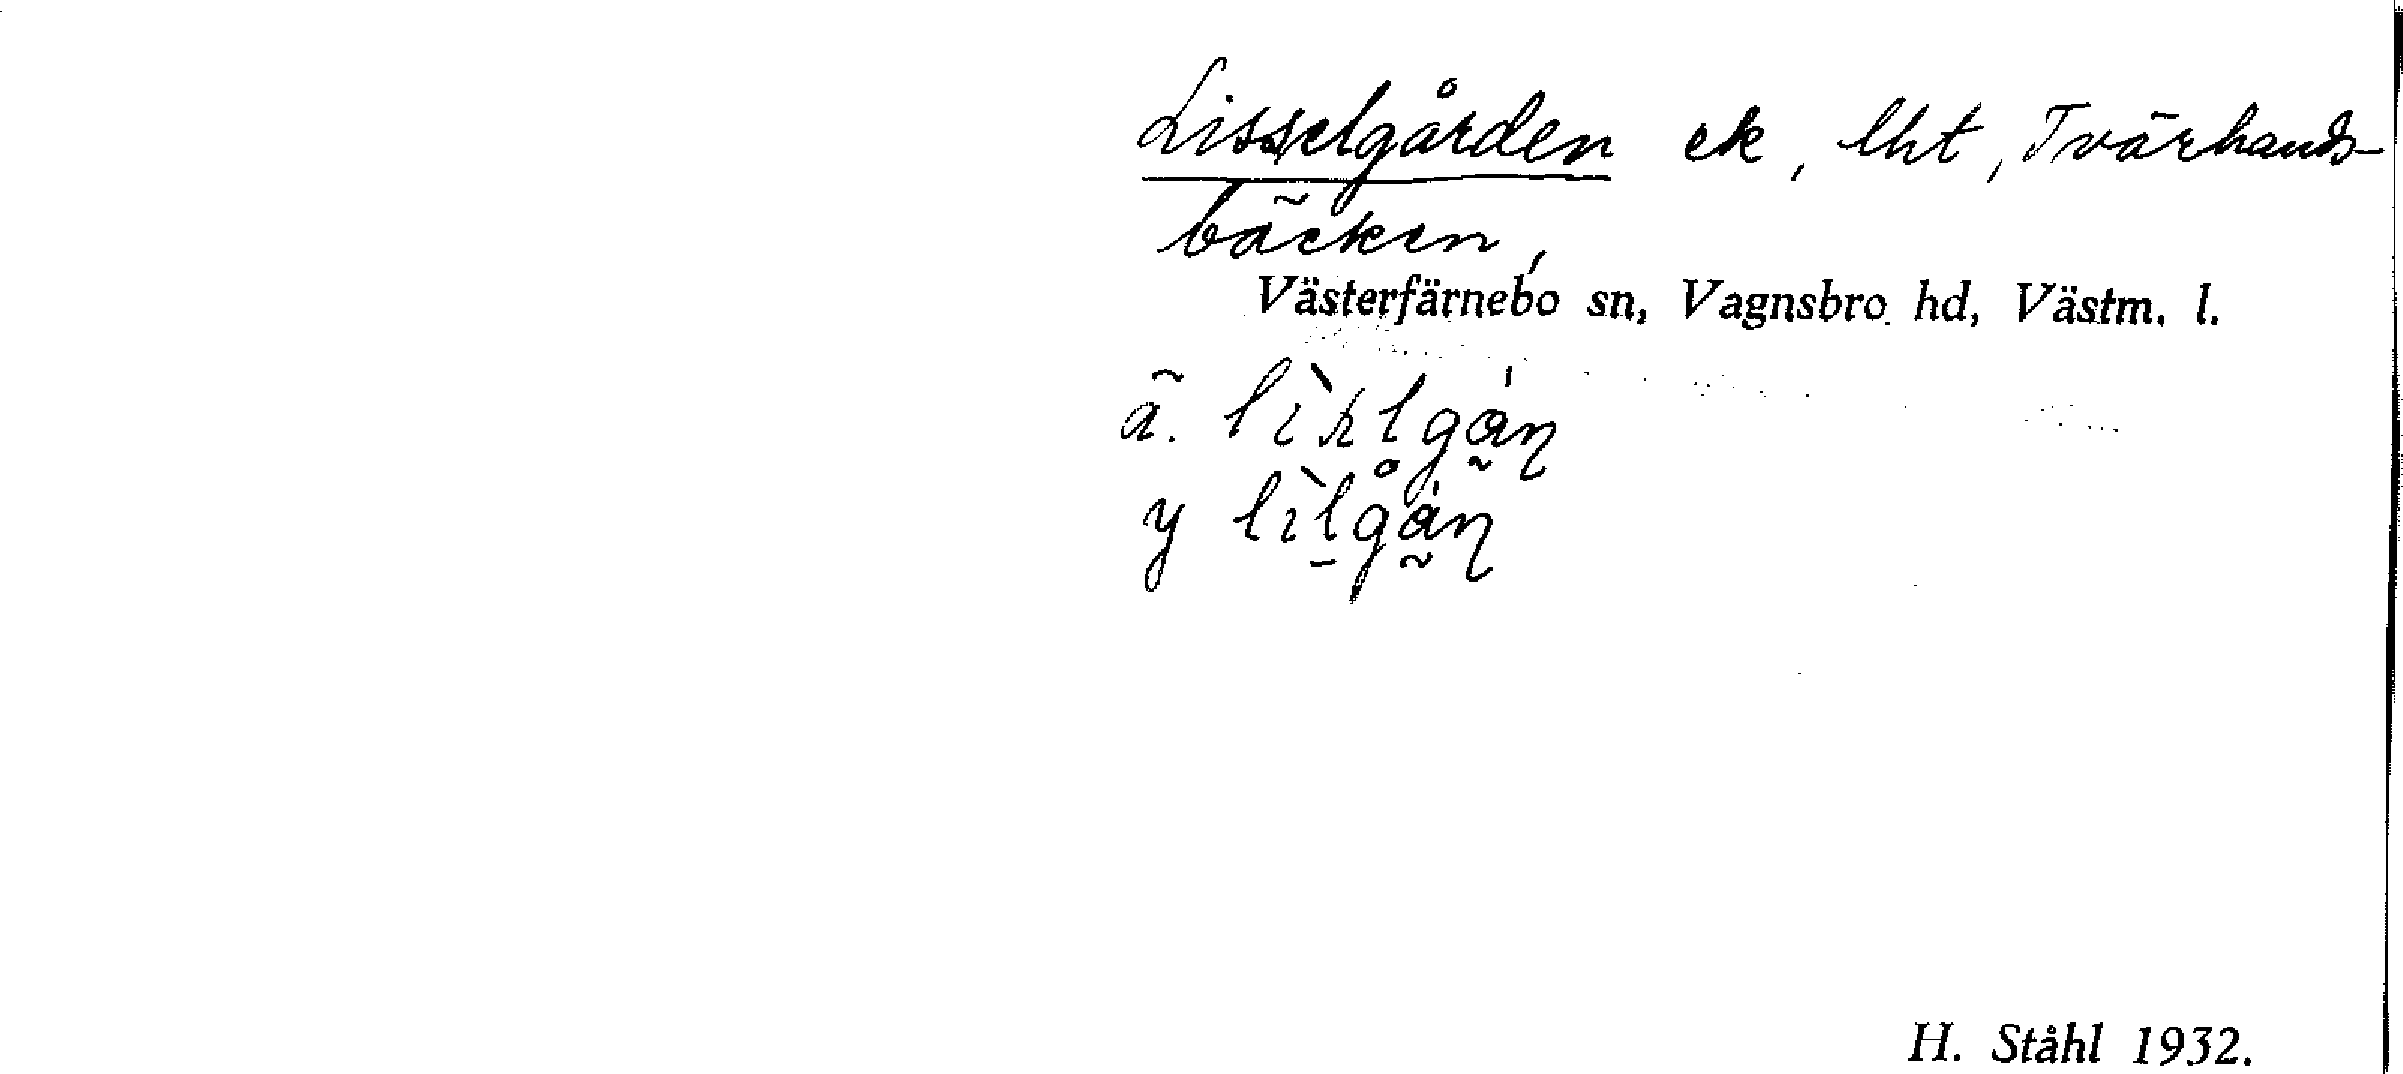 Lisselgården ek, lht, Tvärhands-
bäcken,
Västerfärnebo sn, Vagnsbro hd, Västm. l.
ä.
y
H. Ståhl 1932.